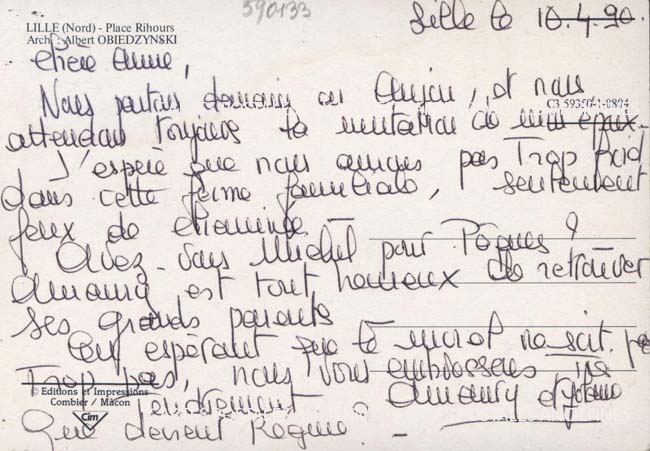 590133
LILLE (Nord) - Place Rihours
Arch : Albert OBIEDZYNSKI
Lille le 10.4.90
Chère Anne,
Nous partons demain en Anjou, et nous
C3 59350-1-0804
attendons toujours la mutation de
J'espère que nous aurons pas Trop froid
dans cette ferme familiale, seulement
feux de cheminée.
Avez-vous Michel pour Pâques ?
Amaury est tout heureux de retrouver
ses grands parents
En espérant que le moral ne soit pas
Trop bas, nous vous embrassons
tendrement Amaury
© Editions et Impressions
Combier / Mâcon
Cim
Que devient